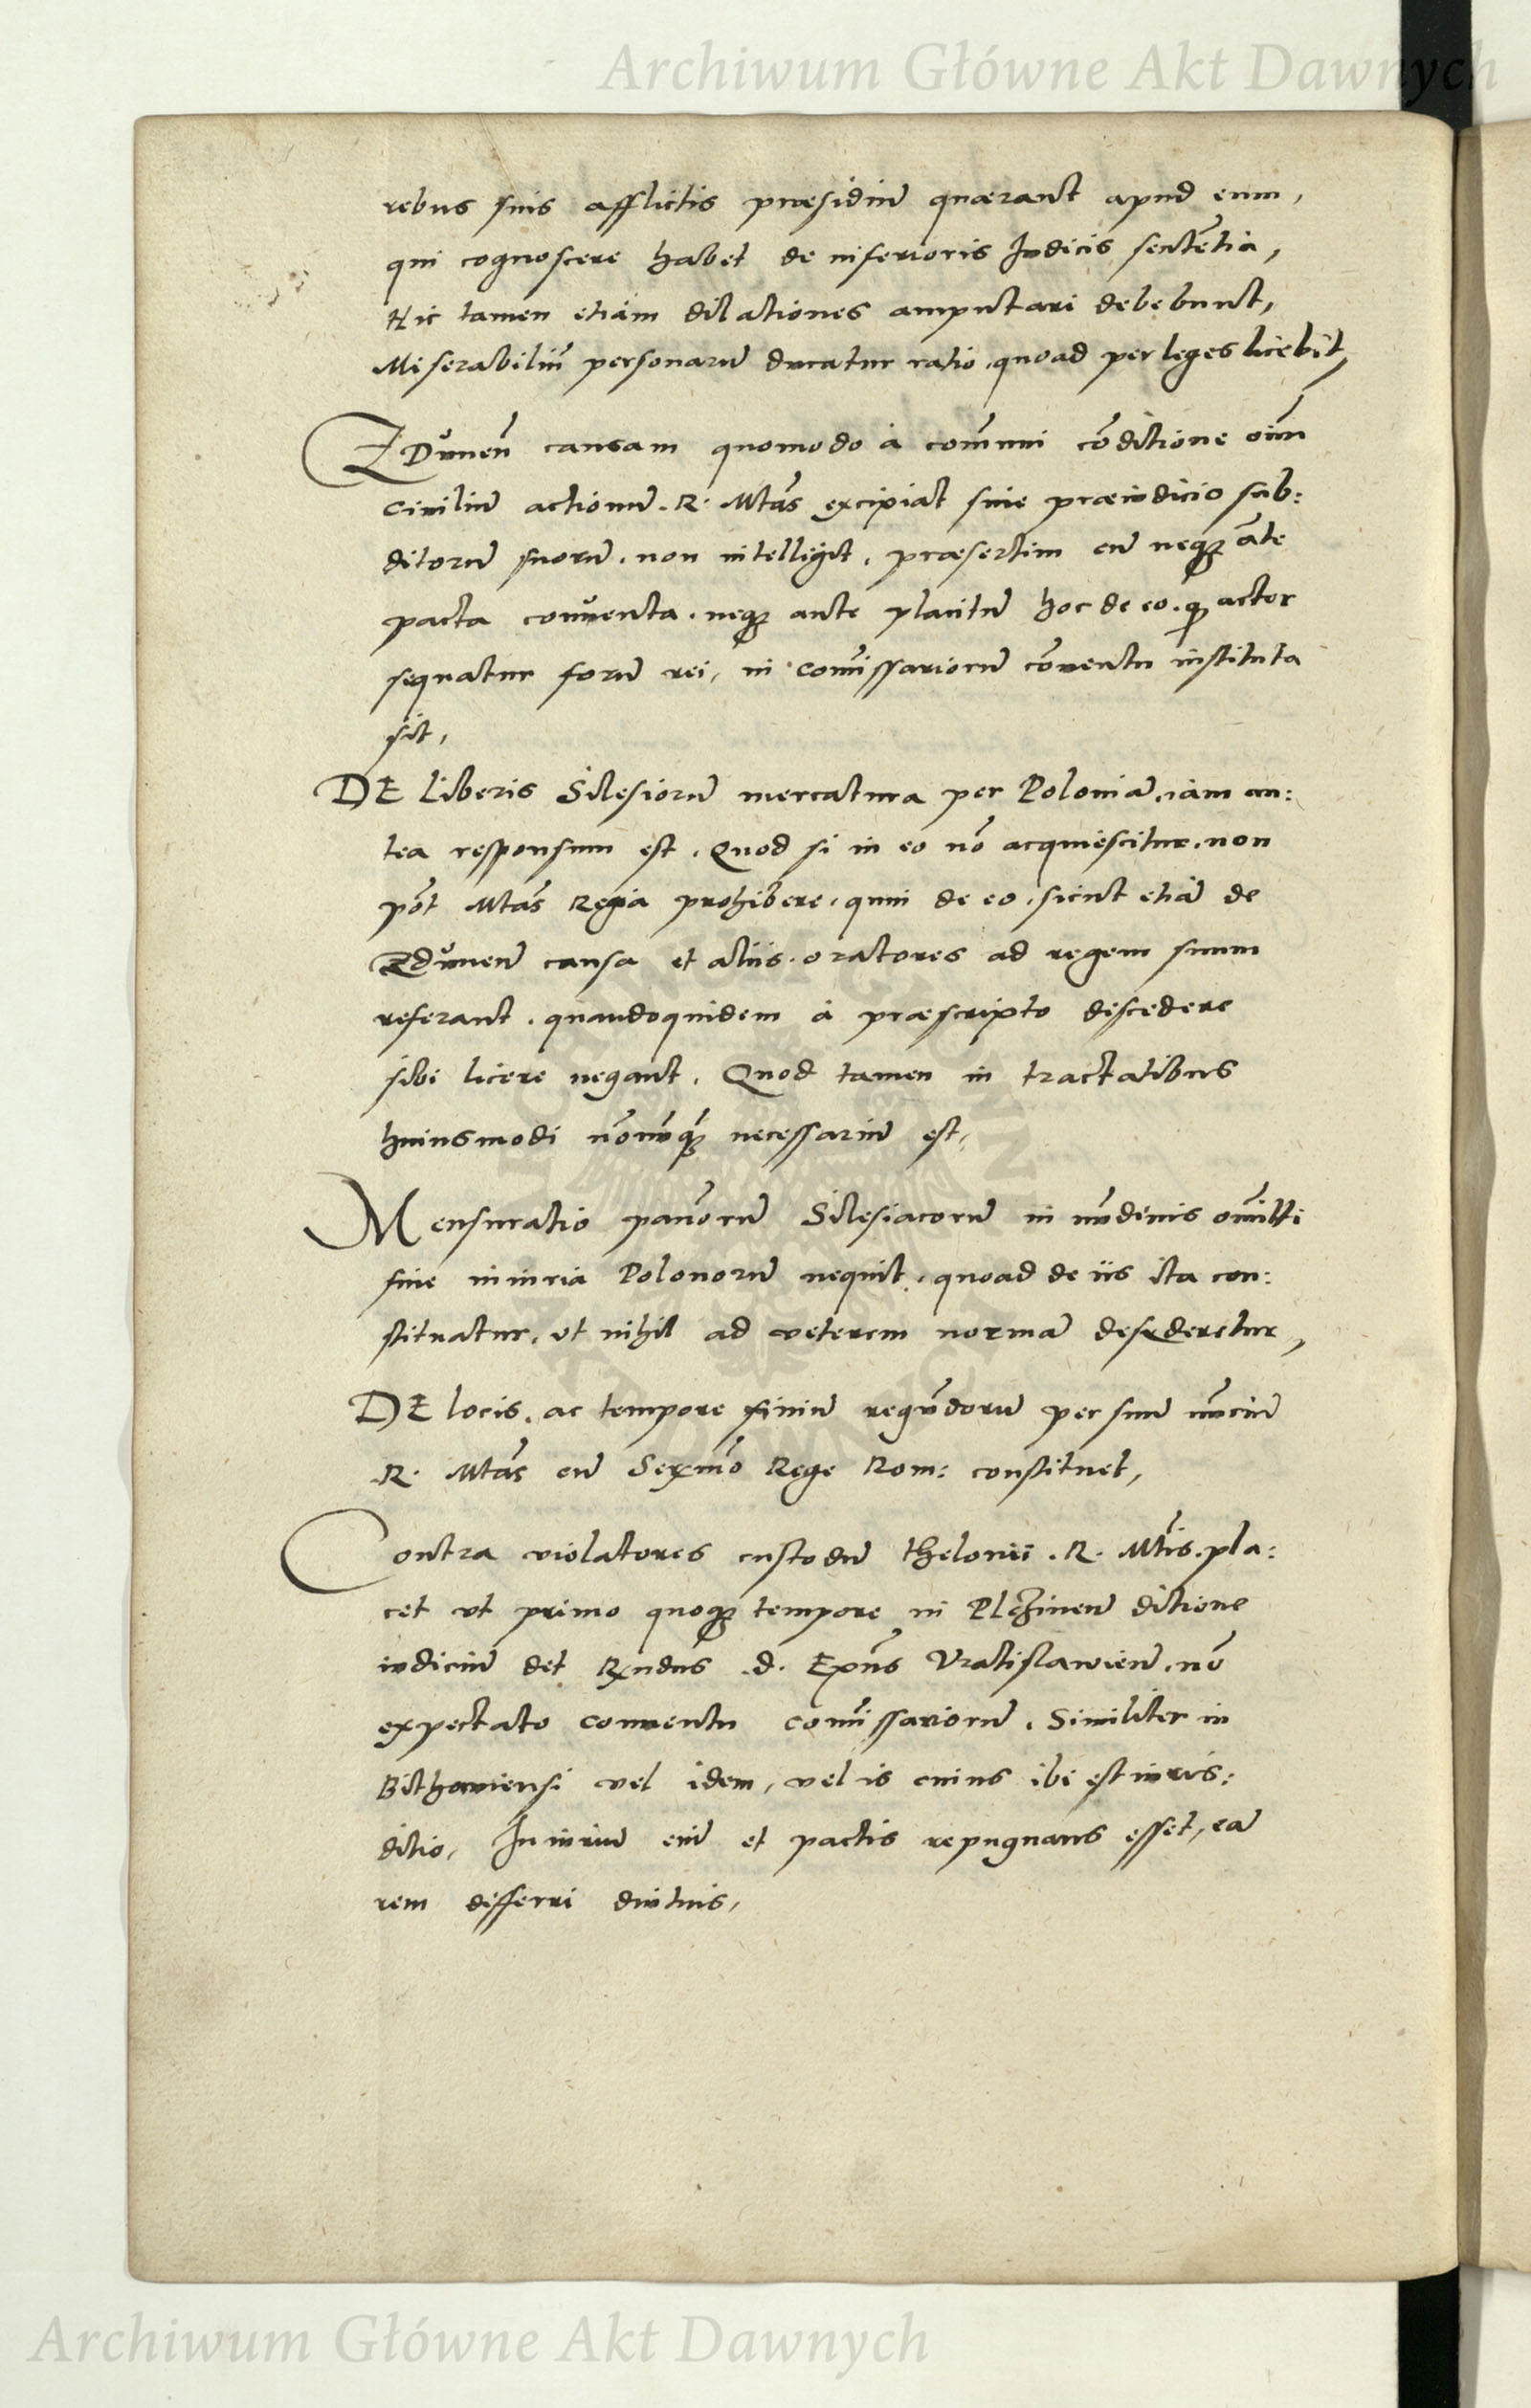 Archiwum Główne Akt Dawnych
rebus suis afflictis præsidiũ quærant apud eum,
qui cognoscere habet de inferioris Iudicis sentẽtia,
Hic tamen etiam dilationes amputari debebunt,
Miserabiliũ personarũ ducatur ratio, quoad per leges licebit,
Zdŭnen̄ causam quomodo à com̃uni cõditione oĩm
ciuiliũ actionũ. R. Mtas̃ excipiat sine præiudicio sub:
ditorũ suorũ, non intelligit, præsertim cũ neqʒ ãte
pacta conŭenta, neqʒ ante placitũ hoc de eo, ꝙ actor
sequatur forũ rei, in com̃issariorũ cõuentu instituta
sit,
DE liberis Silesiorũ mercatura per Poloniã, iam an:
tea responsum est. Quod si in eo nõ acquiescitur, non
põt Mtas̃ Regia prohibere, quin de eo, sicut etiã de
Zdŭnen̄ causa et aliis, oratores ad regem suum
referant, quandoquidem à præscripto discẽdere
sibi licere negant, Quod tamen in tractatibus
huiusmodi nõnũqʒ necessariũ est,
Mensuratio pañorũ Silesiacorũ in nũdinis om̃itti
sine iniuria Polonorũ nequit, quoad de iis ita con:
stituatur, vt nihil ad veterem normã desyderetur,
DE locis, ac tempore finiũ regũdorũ per suũ nũciũ
R. Mtas̃ cũ Serm̃o Rege Rom: constituet,
Contra violatores custodũ thelonii. R. Mtĩs, pla:
cet vt primo quoqʒ tempore in Plczinen̄ ditione
iudiciũ det Rndus .d. Epũs Vratislawien̄, nõ
expectato conuentu com̃issariorũ. Similiter in
Bithomiensi vel idem, vel is cuius ibi est iuris:
ditio, Iniuriũ enĩ et pactis repugnans esset, eã
rem differri diutius,
Archiwum Główne Akt Dawnych